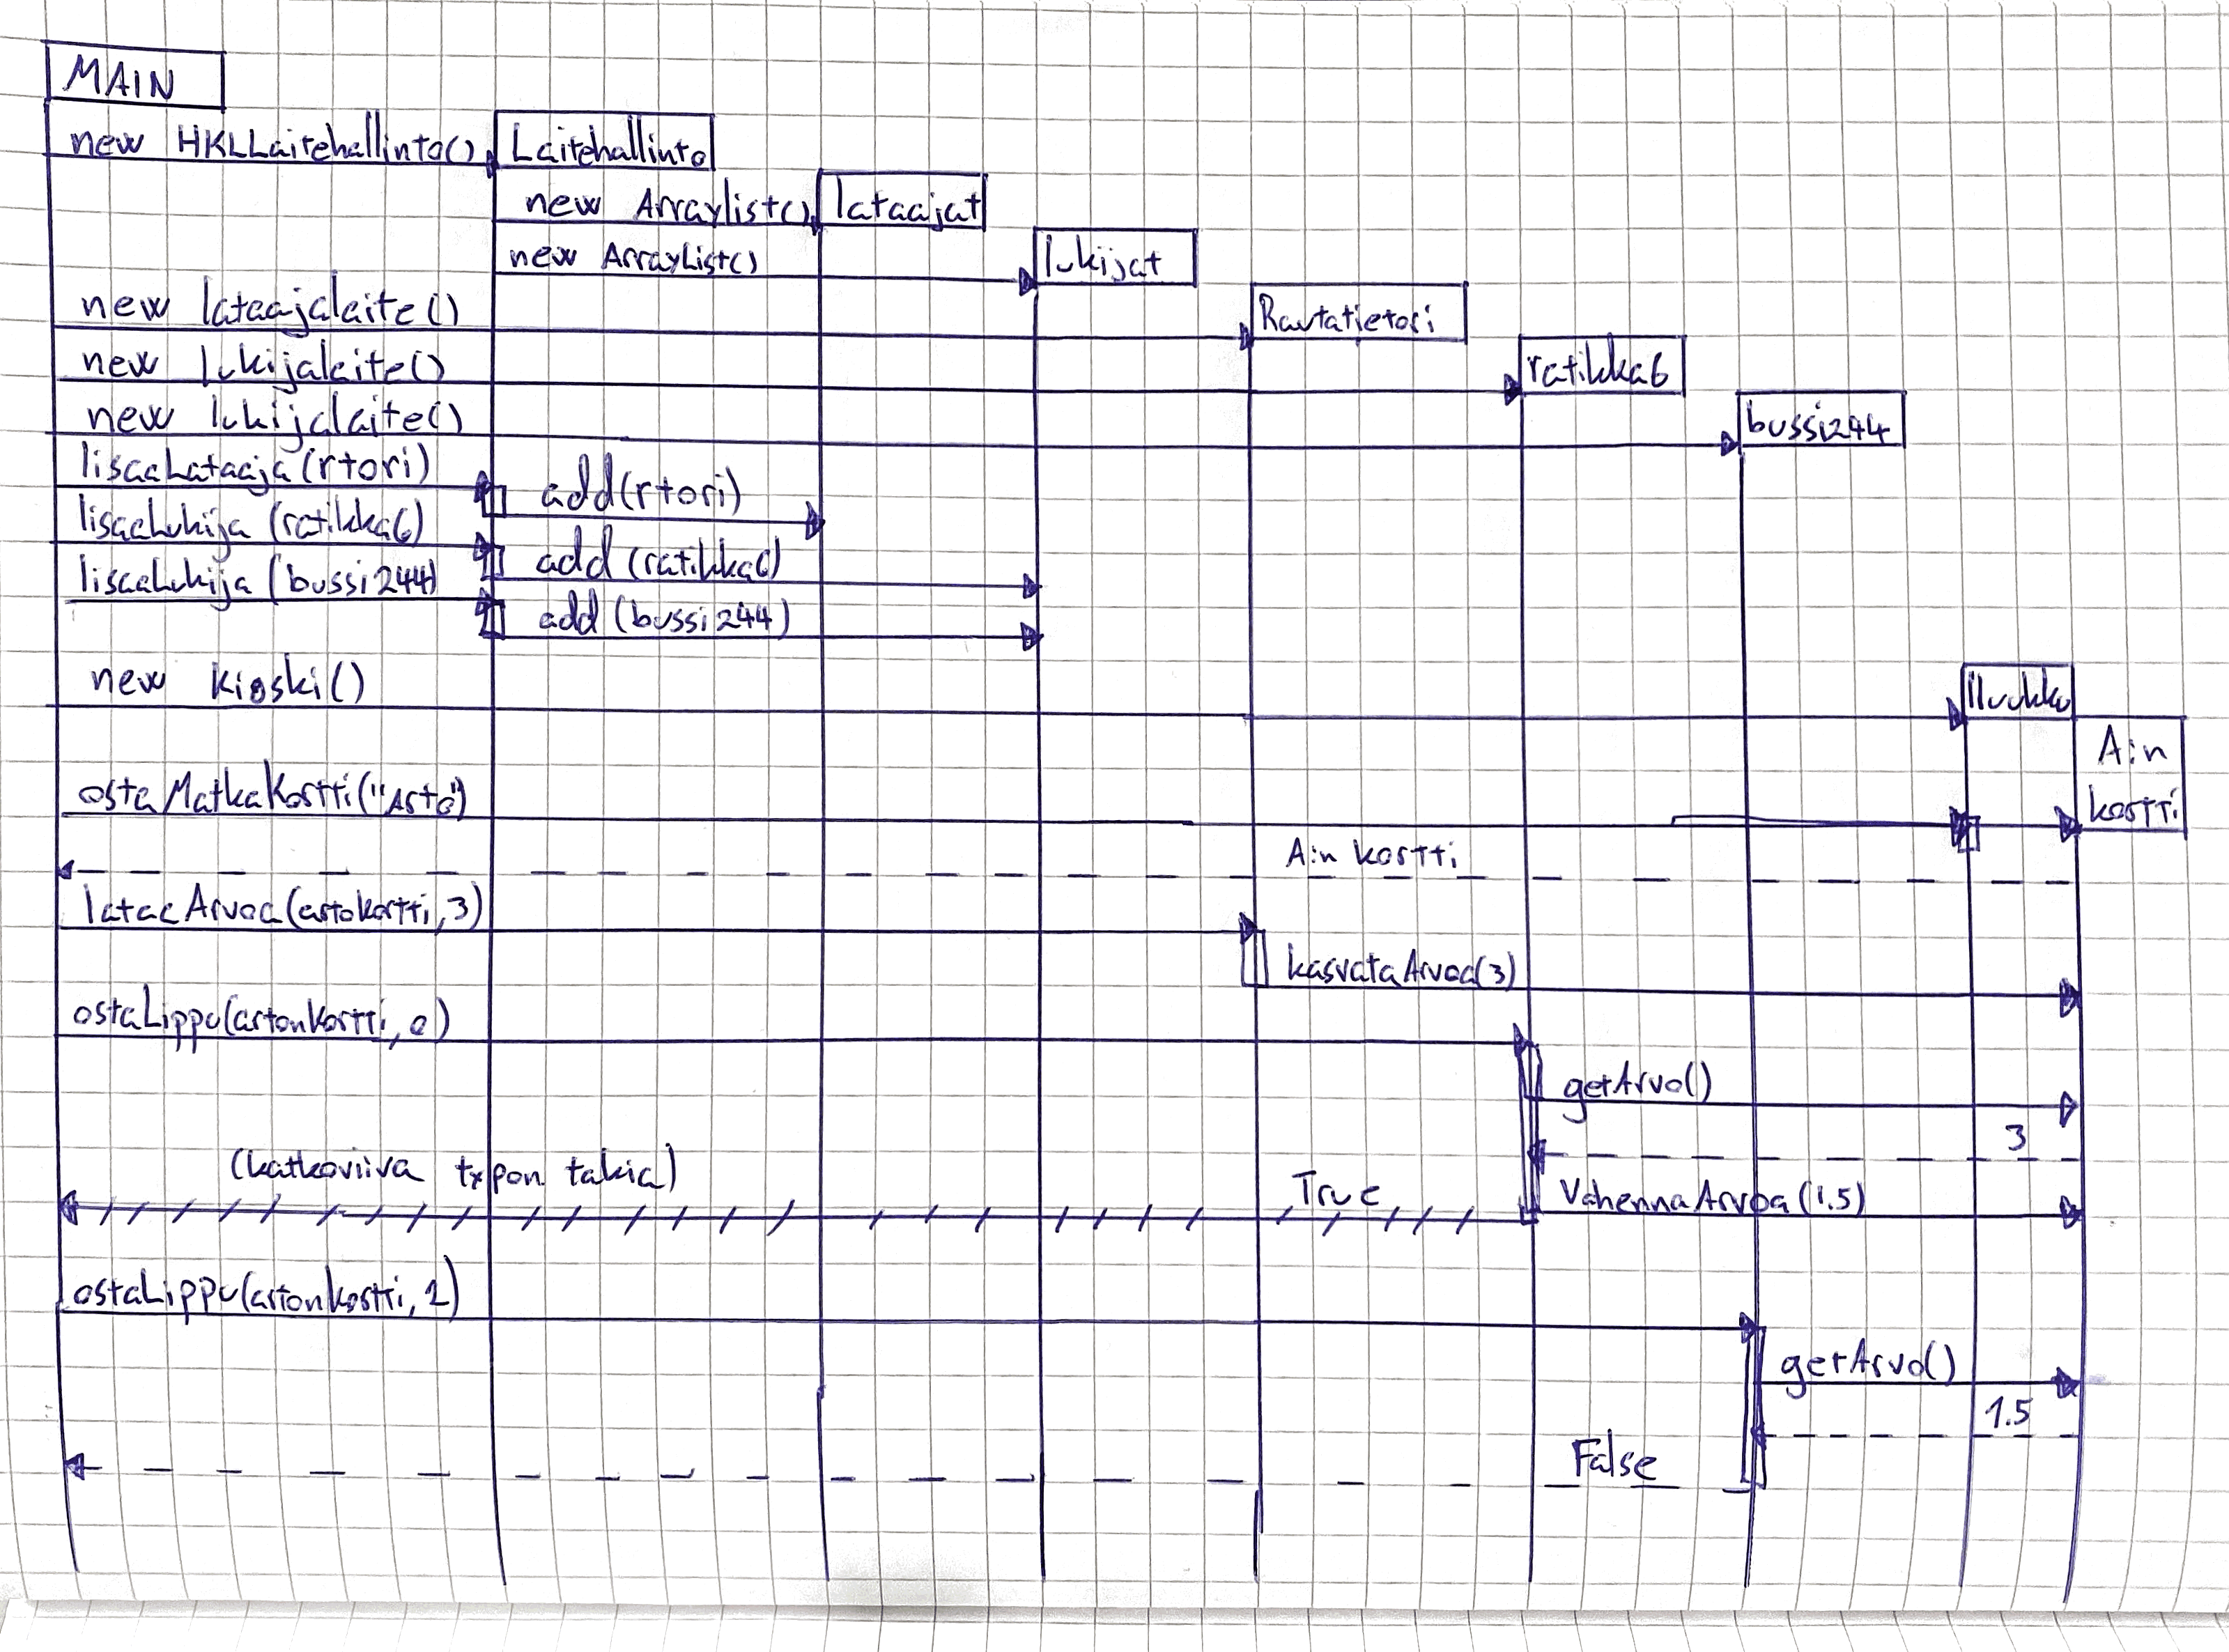 MAIN
new HKLLaitehallinto()
Laitehallinto
new Arraylist()
lataajat
new ArrayList()
lukijat
new lataajalaite()
Rautatietori
new lukijalaite()
ratikka6
new lukijalaite()
bussi244
lisaaLataaja(rtori)
add(rtori)
lisaaLukija (ratikka6)
add (ratikka6)
lisaaLukija (bussi244)
add (bussi244)
new kioski()
A:n
kortti
ostaMatkaKortti("Arto")
A:n kortti
lataaArvoa(artokortti, 3)
kasvataArvoa(3)
ostaLippu(artonkortti, 0)
getArvo()
3
(katkoviiva typon takia)
True
VahennaArvoa (1.5)
ostaLippu(artonkortti, 2)
getArvo()
1.5
False